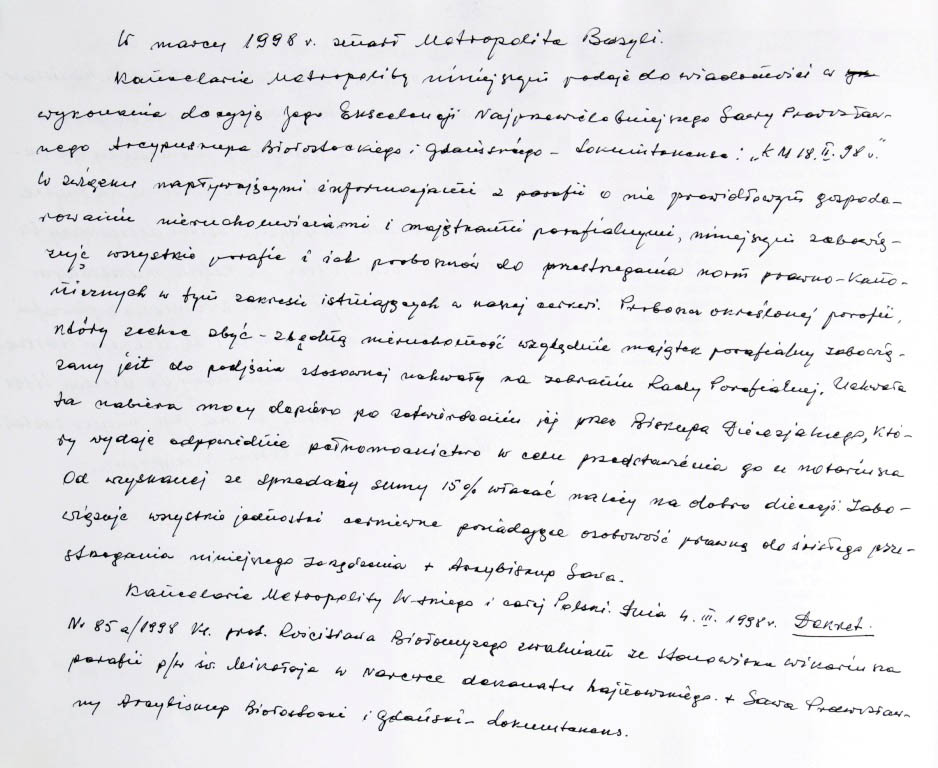 W marcu 1998 r. zmarł Metropolita Bazyli.
Kancelaria Metropolity niniejszym podaje do wiadomości w
wykonania decyzją Jego Ekscelencji Najprzewielebniejszego Sawy Prawosław-
nego Arcypiskupa Białostockiego i Gdańskiego – Lokumtenensa: „KM 18.II.98 r."
W związku napływającymi informacjami z parafii o nie prawidłowym gospoda-
rowaniu nieruchomościami i majątkami parafialnymi, niniejszym zobowią-
zuję wszystkie parafie i ich proboszczów do przestrzegania norm prawno-kano-
nicznych w tym zakresie istniejących w naszej cerkwi. Proboszcz określonej parafii,
który zechce zbyć – zbędną nieruchomość względnie majątek parafialny zobowią-
zany jest do podjęcia stosownej uchwały na zebraniu Rady Parafialnej. Uchwała
ta nabiera mocy dopiero po zatwierdzeniu jej przez Biskupa Diecezjalnego, któ-
ry wydaje odpowiednie pełnomocnictwo w celu przedstawienia go u notariusza
Od uzyskanej ze sprzedaży sumy 15% wpłacać należy na dobro diecezji. Zobo-
wiązuje wszystkie jednostki cerkiewne posiadające osobowość prawną do ścisłego prze-
strzegania niniejszego zarządzenia + Arcybiskup Sawa.
Kancelaria Metropolity W-skiego i całej Polski. Dnia 4.III.1998 r. Dekret.
Nr 85a/1998 Ks. prot. Rościsława Białomyzego zwalniam ze stanowiska wikariusza
parafii p/w św. Mikołaja w Narewce dekanatu hajnowskiego. + Sawa Prawosław-
ny Arcybiskup Białostocki i Gdański – Lokumtenens.